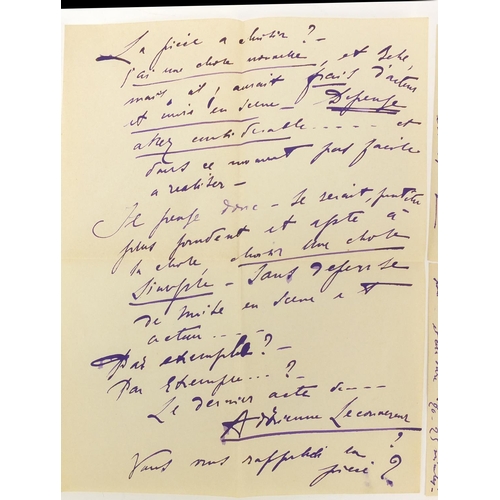 La pièce a choisir ? -
j'ai une chose nouvelle, et belle,
mais il y aurait frais d'acteurs
et mise en scene - Depense
assez considerable - - - - - et
dans ce moment pas facile
a realiser -
Je pense donc - Se serait, peutetre
plus prudent et apte à
la chose choisir une chose
Simple - Sans defense
de mise en scene et
acteurs - - - -
Par exemple ? -
Par Exemple...? -
Le dernier acte de - - -
Adrienne Lecouvreur
?
Vous vous rappelez la
pièce ?